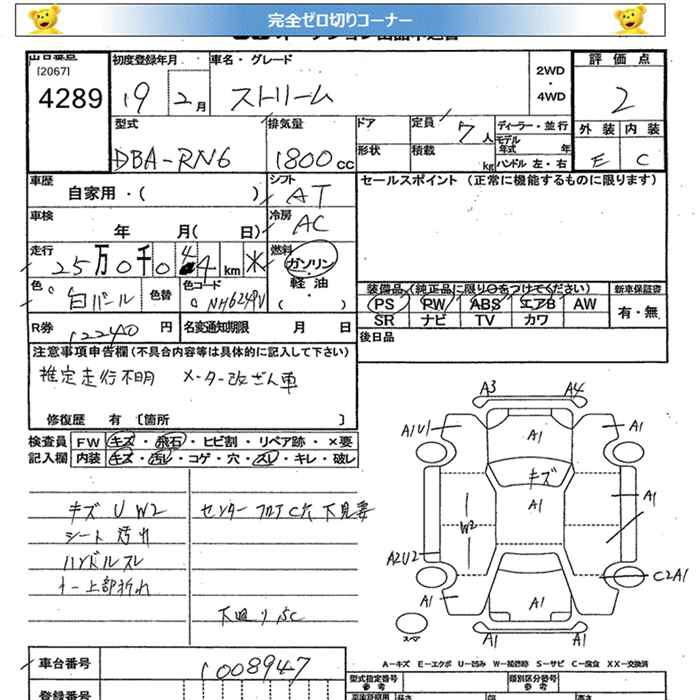 完全ゼロ切りコーナー
[2067]
4289
初度登録年月
19 2月
車名・グレード
ストリーム
2WD
・
4WD
評価点
2
型式
DBA-RN6
排気量
1800cc
ドア
形状
定員
7人
積載
kg
ディーラー・並行
モデル年式 年
ハンドル 左・右
外装 内装
E C
車歴
自家用・( )
シフト
AT
セールスポイント (正常に機能するものに限ります)
車検
年 月( 日)
冷房
AC
走行
25万0千044km
燃料
ガソリン
・
軽油
・
( )
色
白パール
色替
色コード
NH624PV
装備品(純正品に限り○をつけてください)
PS PW ABS エアB AW
SR ナビ TV カワ
新車保証書
有・無
R券
12240円
名変通知期限 月 日
後日品
注意事項申告欄(不具合内容等は具体的に記入して下さい)
推定走行不明 メーター改ざん車
修復歴 有〔箇所 〕
検査員記入欄
FW キズ・飛石・ヒビ割・リペア跡・×要
内装 キズ・汚レ・コゲ・穴・スレ・キレ・破レ
キズ U W2
シート 汚れ
ハンドルスレ
キー上部折れ
センターフロアC穴 下見要
下回りSC
A3 A4
A1U1 A1 A1
キズ
W2 A1 A1
A2U2
A1 A1 C2A1
スペア
A1 A1
A-キズ E-エクボ U-凹み W-補修跡 S-サビ C-腐食 XX-交換済
車台番号
1008947
型式指定番号
参考
類別区分番号
参考
登録番号
長さ
幅
高さ